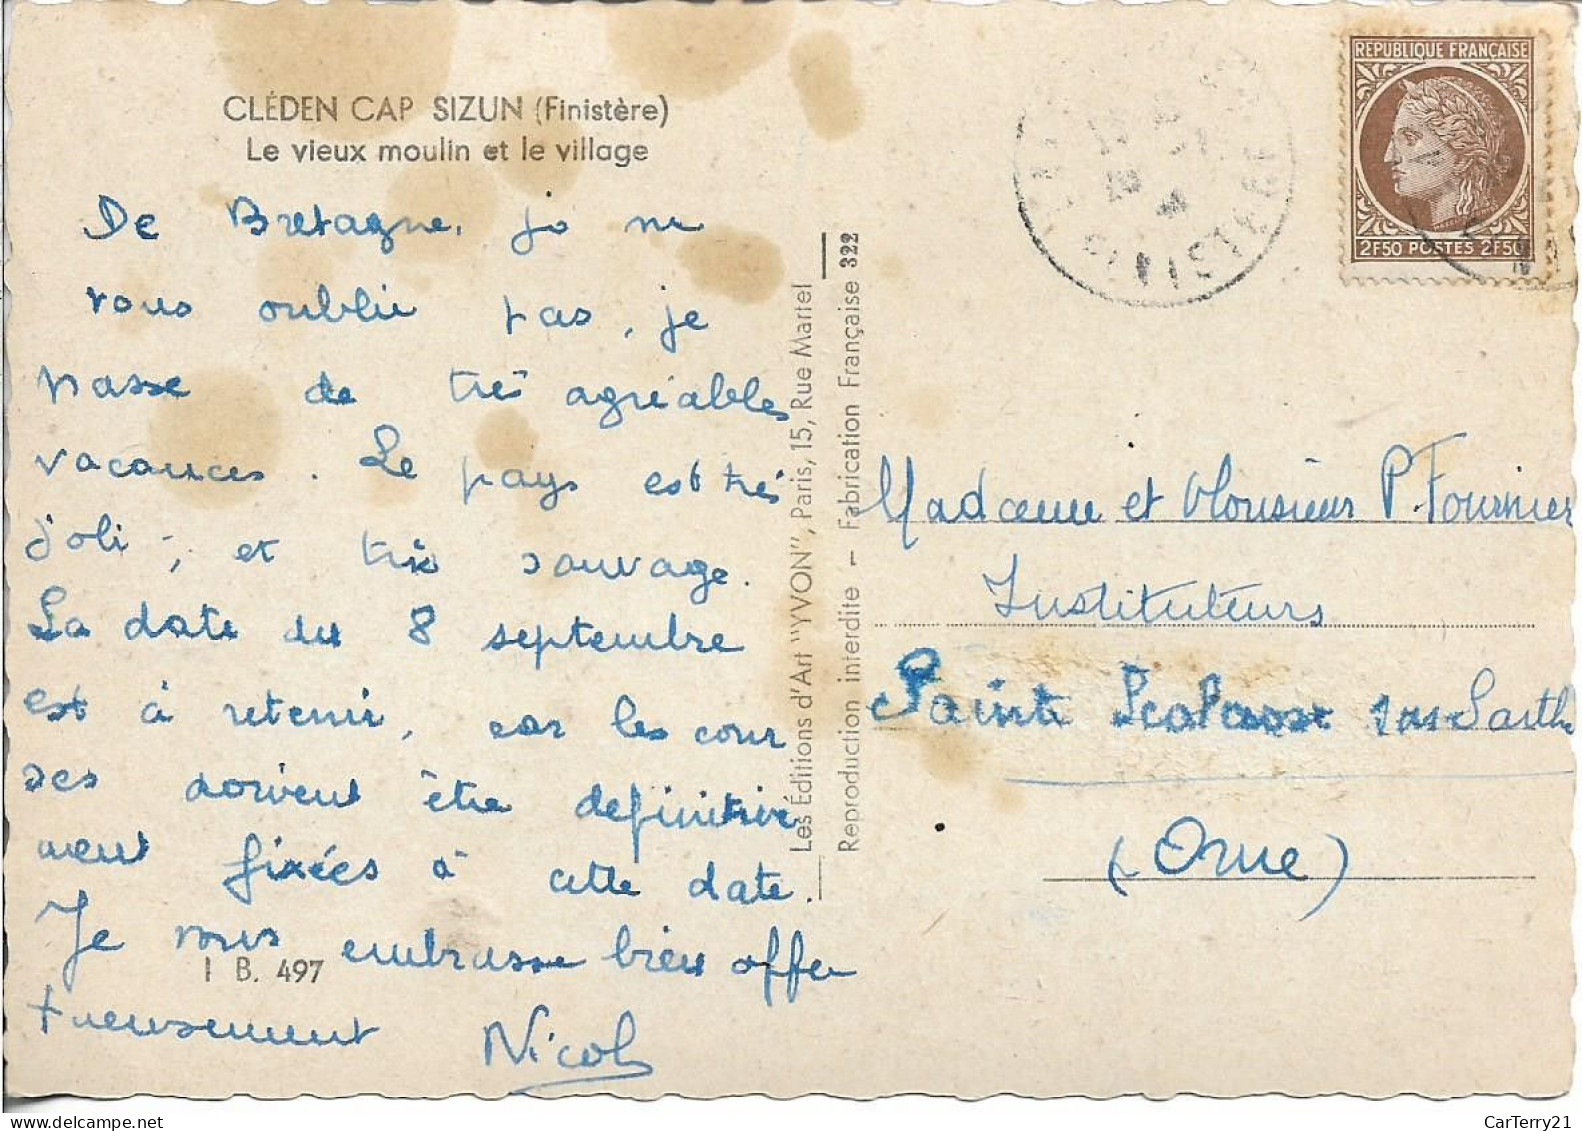 CLÉDEN CAP SIZUN (Finistère)
Le vieux moulin et le village
De Bretagne, je ne
vous oublie pas, je
passe de très agréables
vacances. Le pays est très
joli, et très sauvage.
La date du 8 septembre
est à retenir, car les cour
ses doivent être definitive
ment fixées à cette date.
Je vous embrasse bien affec
tueusement Nicole
I B. 497
Les Éditions d'Art "YVON", Paris, 15, Rue Martel
Reproduction interdite — Fabrication Française 322
REPUBLIQUE FRANÇAISE
2F50 POSTES 2F50
FINISTERE
Madame et Monsieur P. Fournier
Instituteurs
Sainte Scolasse sur Sarthe
(Orne)
CarTerry21